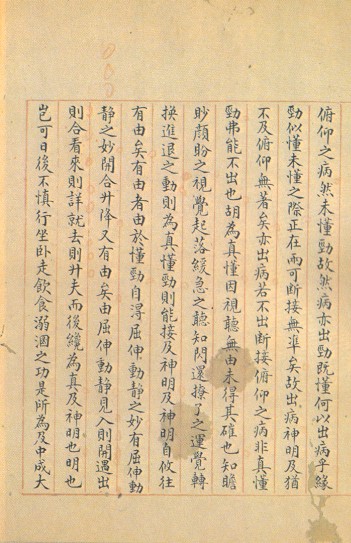 俯仰之病然未懂勁故然病亦出勁既懂何以出病乎緣
勁似懂未懂之際正在兩可斷接無準矣故出病神明及猶
不及俯仰無著矣亦出病若不出斷接俯仰之病非真懂
勁弗能不出也胡為真懂因視聽無由未得其確也知瞻
眇顏盼之視覺起落緩急之聽知閃還撩了之運覺轉
換進退之動則為真懂勁則能接及神明及神明自攸往
有由矣有由者由於懂勁自得屈伸動靜之妙有屈伸動
靜之妙開合升降又有由矣由屈伸動靜見入則開遇出
則合看來則詳就去則升夫而後纔為真及神明也明也
豈可日後不慎行坐卧走飲食溺溷之功是所為及中成大